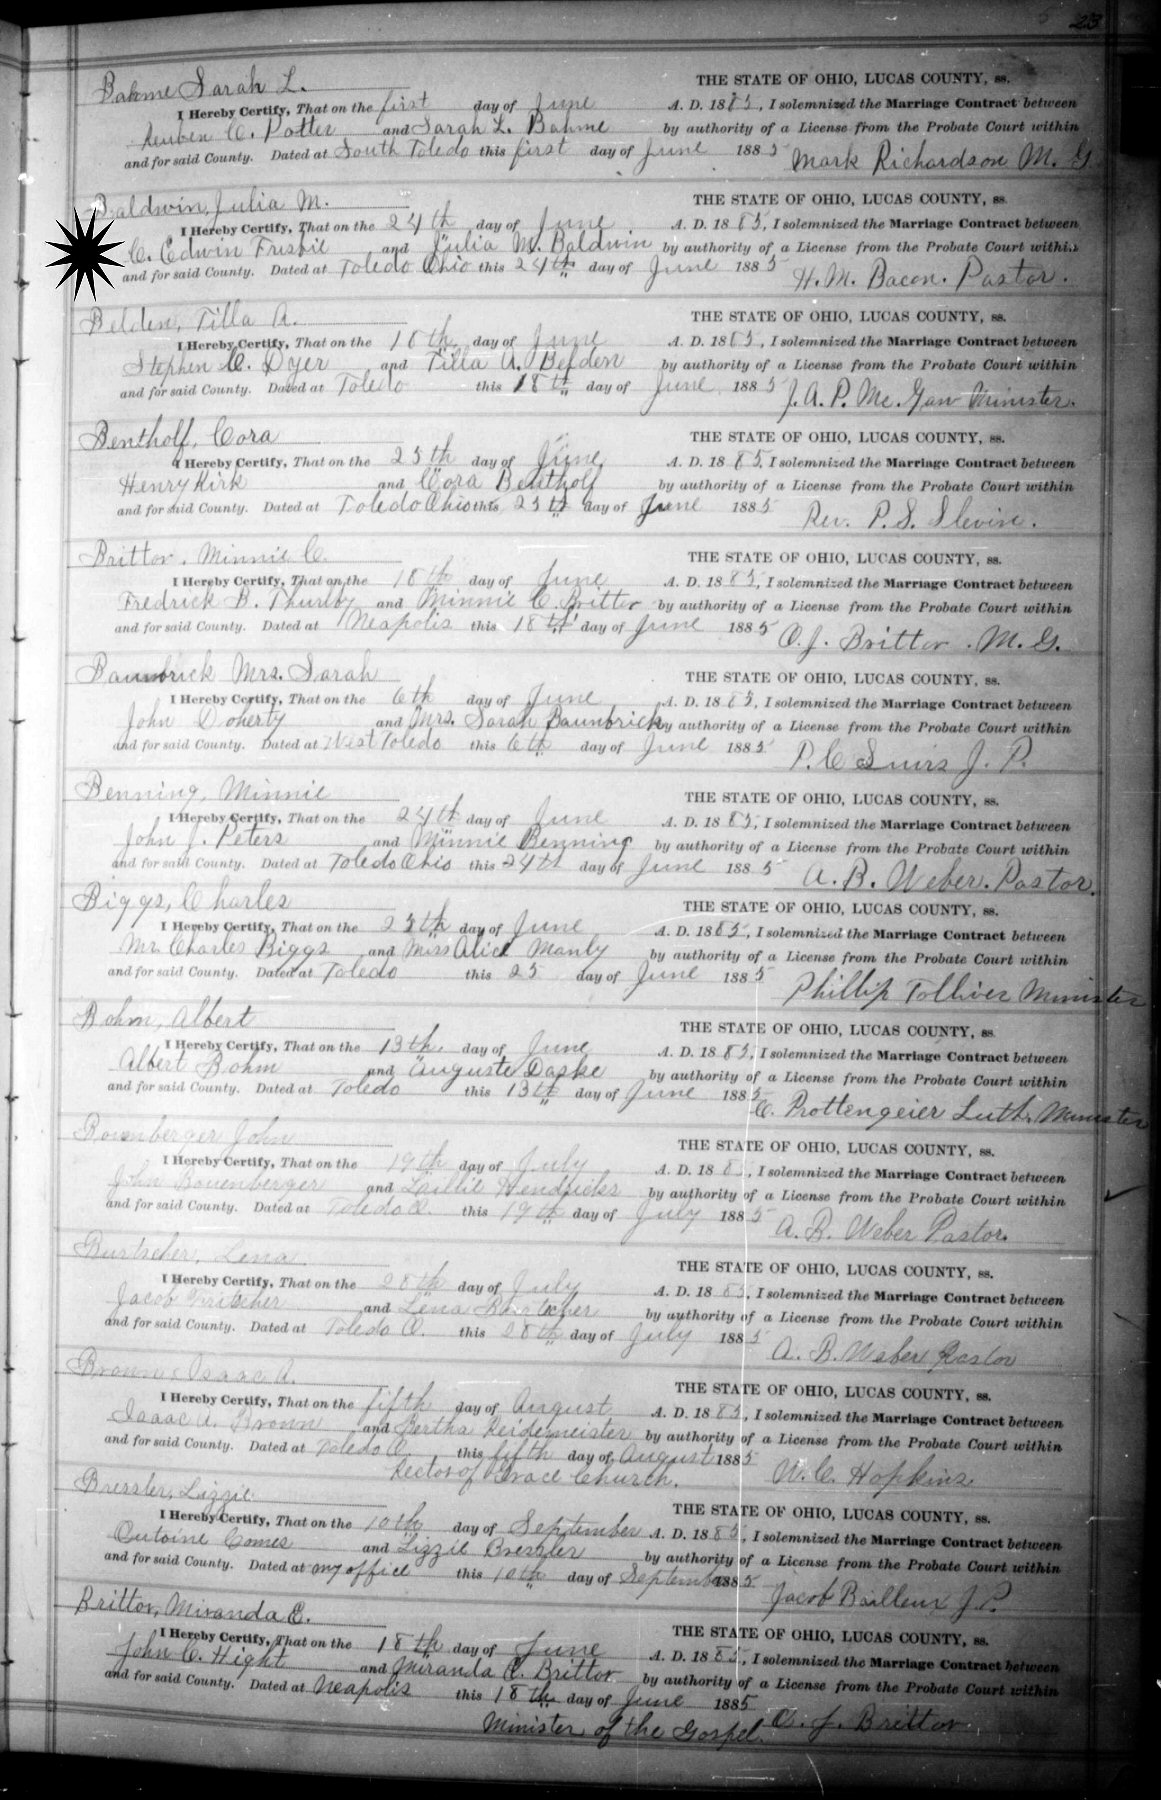 23
Bahme Sarah L. THE STATE OF OHIO, LUCAS COUNTY, ss.
I Hereby Certify, That on the first day of June A. D. 1885, I solemnized the Marriage Contract between
Reuben C. Potter and Sarah L. Bahme by authority of a License from the Probate Court within
and for said County. Dated at South Toledo this first day of June 1885 Mark Richardson M. G.
Baldwin, Julia M. THE STATE OF OHIO, LUCAS COUNTY, ss.
I Hereby Certify, That on the 24th day of June A. D. 1885, I solemnized the Marriage Contract between
C. Edwin Frisbie and Julia M. Baldwin by authority of a License from the Probate Court within
and for said County. Dated at Toledo Ohio this 24th day of June 1885 H. M. Bacon. Pastor.
Belden, Tilla A. THE STATE OF OHIO, LUCAS COUNTY, ss.
I Hereby Certify, That on the 18th day of June A. D. 1885, I solemnized the Marriage Contract between
Stephen C. Dyer and Tilla A. Belden by authority of a License from the Probate Court within
and for said County. Dated at Toledo this 18th day of June 1885 J. A. P. Mc. Gaw Minister.
Bentholf, Cora THE STATE OF OHIO, LUCAS COUNTY, ss.
I Hereby Certify, That on the 25th day of June A. D. 1885, I solemnized the Marriage Contract between
Henry Kirk and Cora Bentholf by authority of a License from the Probate Court within
and for said County. Dated at Toledo Ohio this 25th day of June 1885 Rev. P. S. Slevin.
Britton, Minnie C. THE STATE OF OHIO, LUCAS COUNTY, ss.
I Hereby Certify, That on the 18th day of June A. D. 1885, I solemnized the Marriage Contract between
Fredrick B. Thurby and Minnie C. Britton by authority of a License from the Probate Court within
and for said County. Dated at Neapolis this 18th day of June 1885 O. J. Britton. M. G.
Baumbrick Mrs. Sarah THE STATE OF OHIO, LUCAS COUNTY, ss.
I Hereby Certify, That on the 6th day of June A. D. 1885, I solemnized the Marriage Contract between
John Doherty and Mrs. Sarah Baumbrick by authority of a License from the Probate Court within
and for said County. Dated at West Toledo this 6th day of June 1885 P. C. J. P.
Benning, Minnie THE STATE OF OHIO, LUCAS COUNTY, ss.
I Hereby Certify, That on the 24th day of June A. D. 1885, I solemnized the Marriage Contract between
John J. Peters and Minnie Benning by authority of a License from the Probate Court within
and for said County. Dated at Toledo Ohio this 24th day of June 1885 A. B. Weber. Pastor.
Biggs, Charles THE STATE OF OHIO, LUCAS COUNTY, ss.
I Hereby Certify, That on the 25th day of June A. D. 1885, I solemnized the Marriage Contract between
Mr. Charles Biggs and Miss Alice Manly by authority of a License from the Probate Court within
and for said County. Dated at Toledo this 25 day of June 1885 Phillip Tolliver Minister
Bohm, Albert THE STATE OF OHIO, LUCAS COUNTY, ss.
I Hereby Certify, That on the 13th day of June A. D. 1885, I solemnized the Marriage Contract between
Albert Bohm and Auguste Daske by authority of a License from the Probate Court within
and for said County. Dated at Toledo this 13th day of June 1885 C. Prottengeier Luth. Minister
Bouenberger John THE STATE OF OHIO, LUCAS COUNTY, ss.
I Hereby Certify, That on the 19th day of July A. D. 1885, I solemnized the Marriage Contract between
John Bouenberger and Hendricks by authority of a License from the Probate Court within
and for said County. Dated at Toledo O. this 19th day of July 1885 A. B. Weber Pastor.
Burtscher, Lena THE STATE OF OHIO, LUCAS COUNTY, ss.
I Hereby Certify, That on the 28th day of July A. D. 1885, I solemnized the Marriage Contract between
Jacob and Lena Burtscher by authority of a License from the Probate Court within
and for said County. Dated at Toledo O. this 28th day of July 1885 A. B. Weber Pastor
Brown, Isaac A. THE STATE OF OHIO, LUCAS COUNTY, ss.
I Hereby Certify, That on the fifth day of August A. D. 1885, I solemnized the Marriage Contract between
Isaac A. Brown and Bertha Heidemeister by authority of a License from the Probate Court within
and for said County. Dated at Toledo O. this fifth day of August 1885 W. C. Hopkins
Rector of Grace Church.
Bressler, Lizzie THE STATE OF OHIO, LUCAS COUNTY, ss.
I Hereby Certify, That on the 10th day of September A. D. 1885, I solemnized the Marriage Contract between
Antoine Gomes and Lizzie Bressler by authority of a License from the Probate Court within
and for said County. Dated at my office this 10th day of September 1885 Jacob Bailleux J. P.
Britton, Miranda E. THE STATE OF OHIO, LUCAS COUNTY, ss.
I Hereby Certify, That on the 18th day of June A. D. 1885, I solemnized the Marriage Contract between
John C. Hight and Miranda E. Britton by authority of a License from the Probate Court within
and for said County. Dated at Neapolis this 18th day of June 1885
Minister of the Gospel. O. J. Britton.